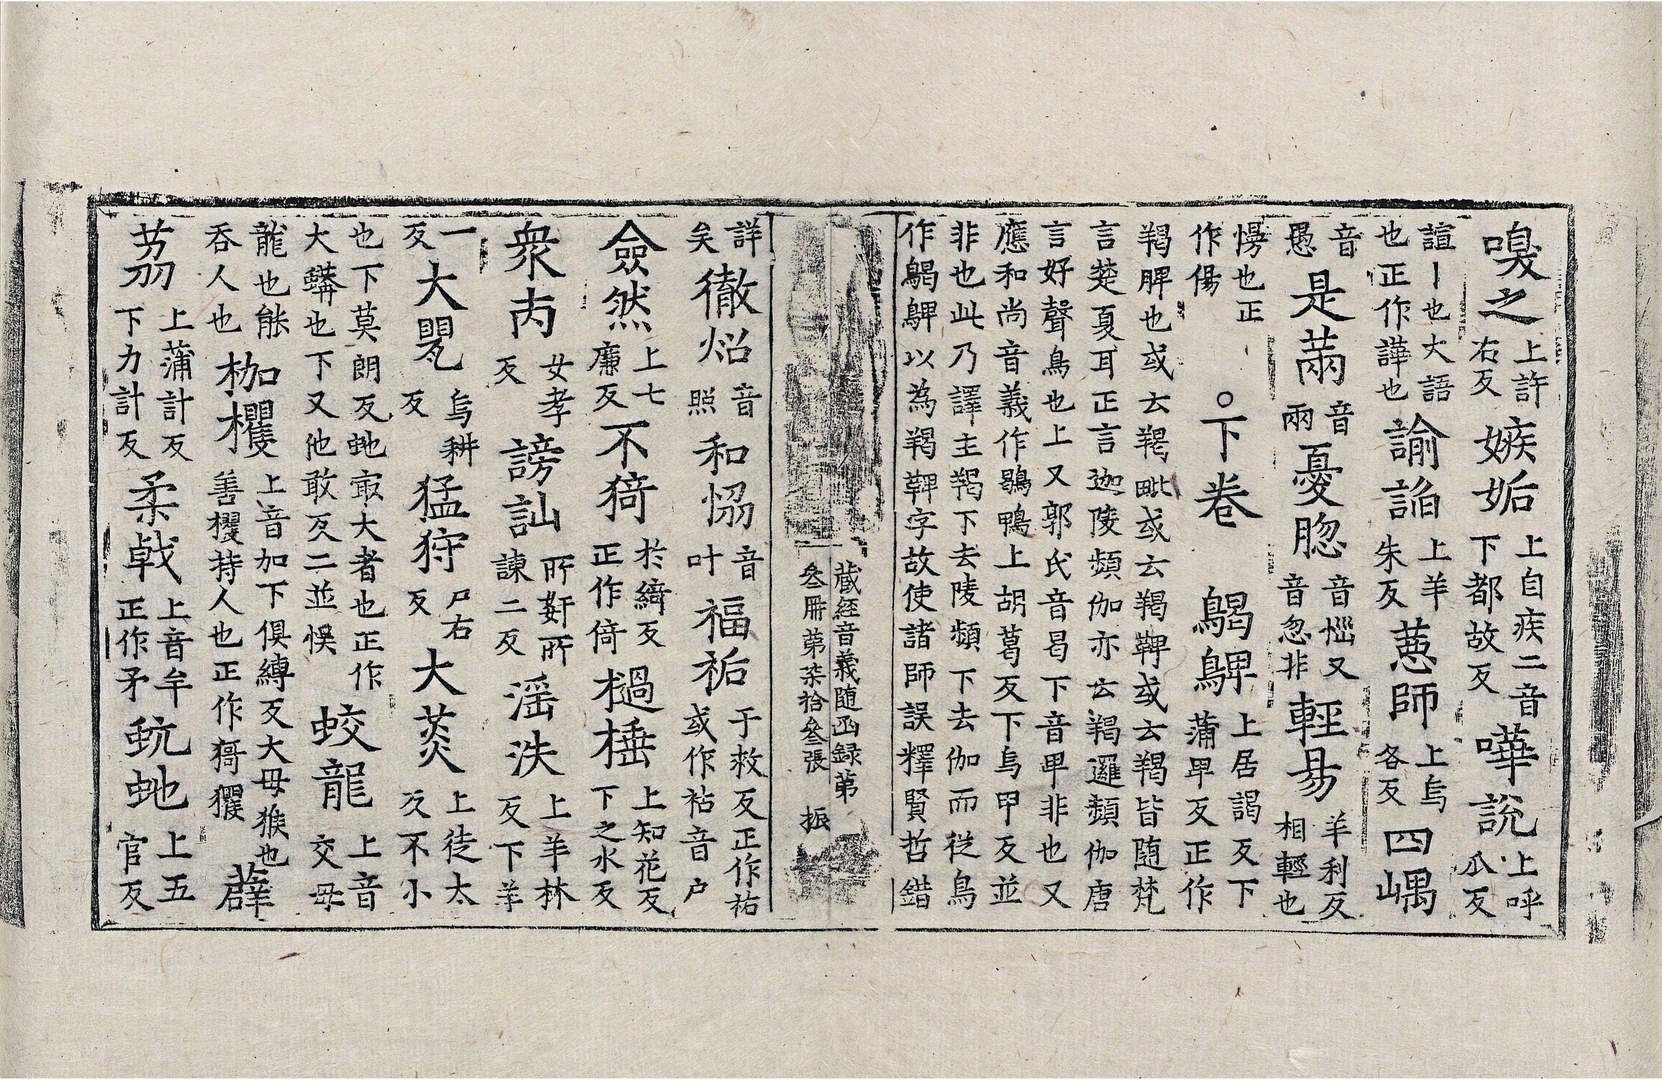 嗅之上許右反嫉妬上自疾二音下都故反嘩說上呼瓜反
諠丨也大語也正作譁也諭諂上羊朱反蒽師上烏各反四嵎
音愚是䓣音兩憂勝音惱又音忽非輕易羊利反相輕也
慢也正作傷○下卷 鶡鵯上居謁反下蒲甲反正作
羯脾也或云羯毗或云羯鞞或云羯皆随梵
言楚夏耳正言迦陵頻伽亦云羯邏頻伽唐
言好聲鳥也上又郭氏音曷下音甲非也又
應和尚音義作鶡鴨上胡葛反下烏甲反並
非也此乃譯主羯下去陵頻下去伽而從鳥
作鶡鵯以為羯鞞字故使諸師誤釋賢哲錯
藏經音義随函録第
叁冊第柒拾叁張 振
詳矣徹炤音照和恊音叶福祐于救反正作祐或作祜音户
僉然上七廉反不猗於綺反正作倚檛棰上知花反下之水反
衆丙女孝反謗訕所姧所諫二反滛泆上羊林反下羊
一反大甖烏耕反猛狩尸右反大菼上徒太反不小
也下莫朗反虵㝡大者也正作大蟒也下又他敢反二並悮蛟龍上音交母
龍也能吞人也枷欔上音加下俱縛反大母猴也善欔持人也正作猗玃薜
茘上蒲計反下力計反柔戟上音牟正作矛蚖虵上五官反